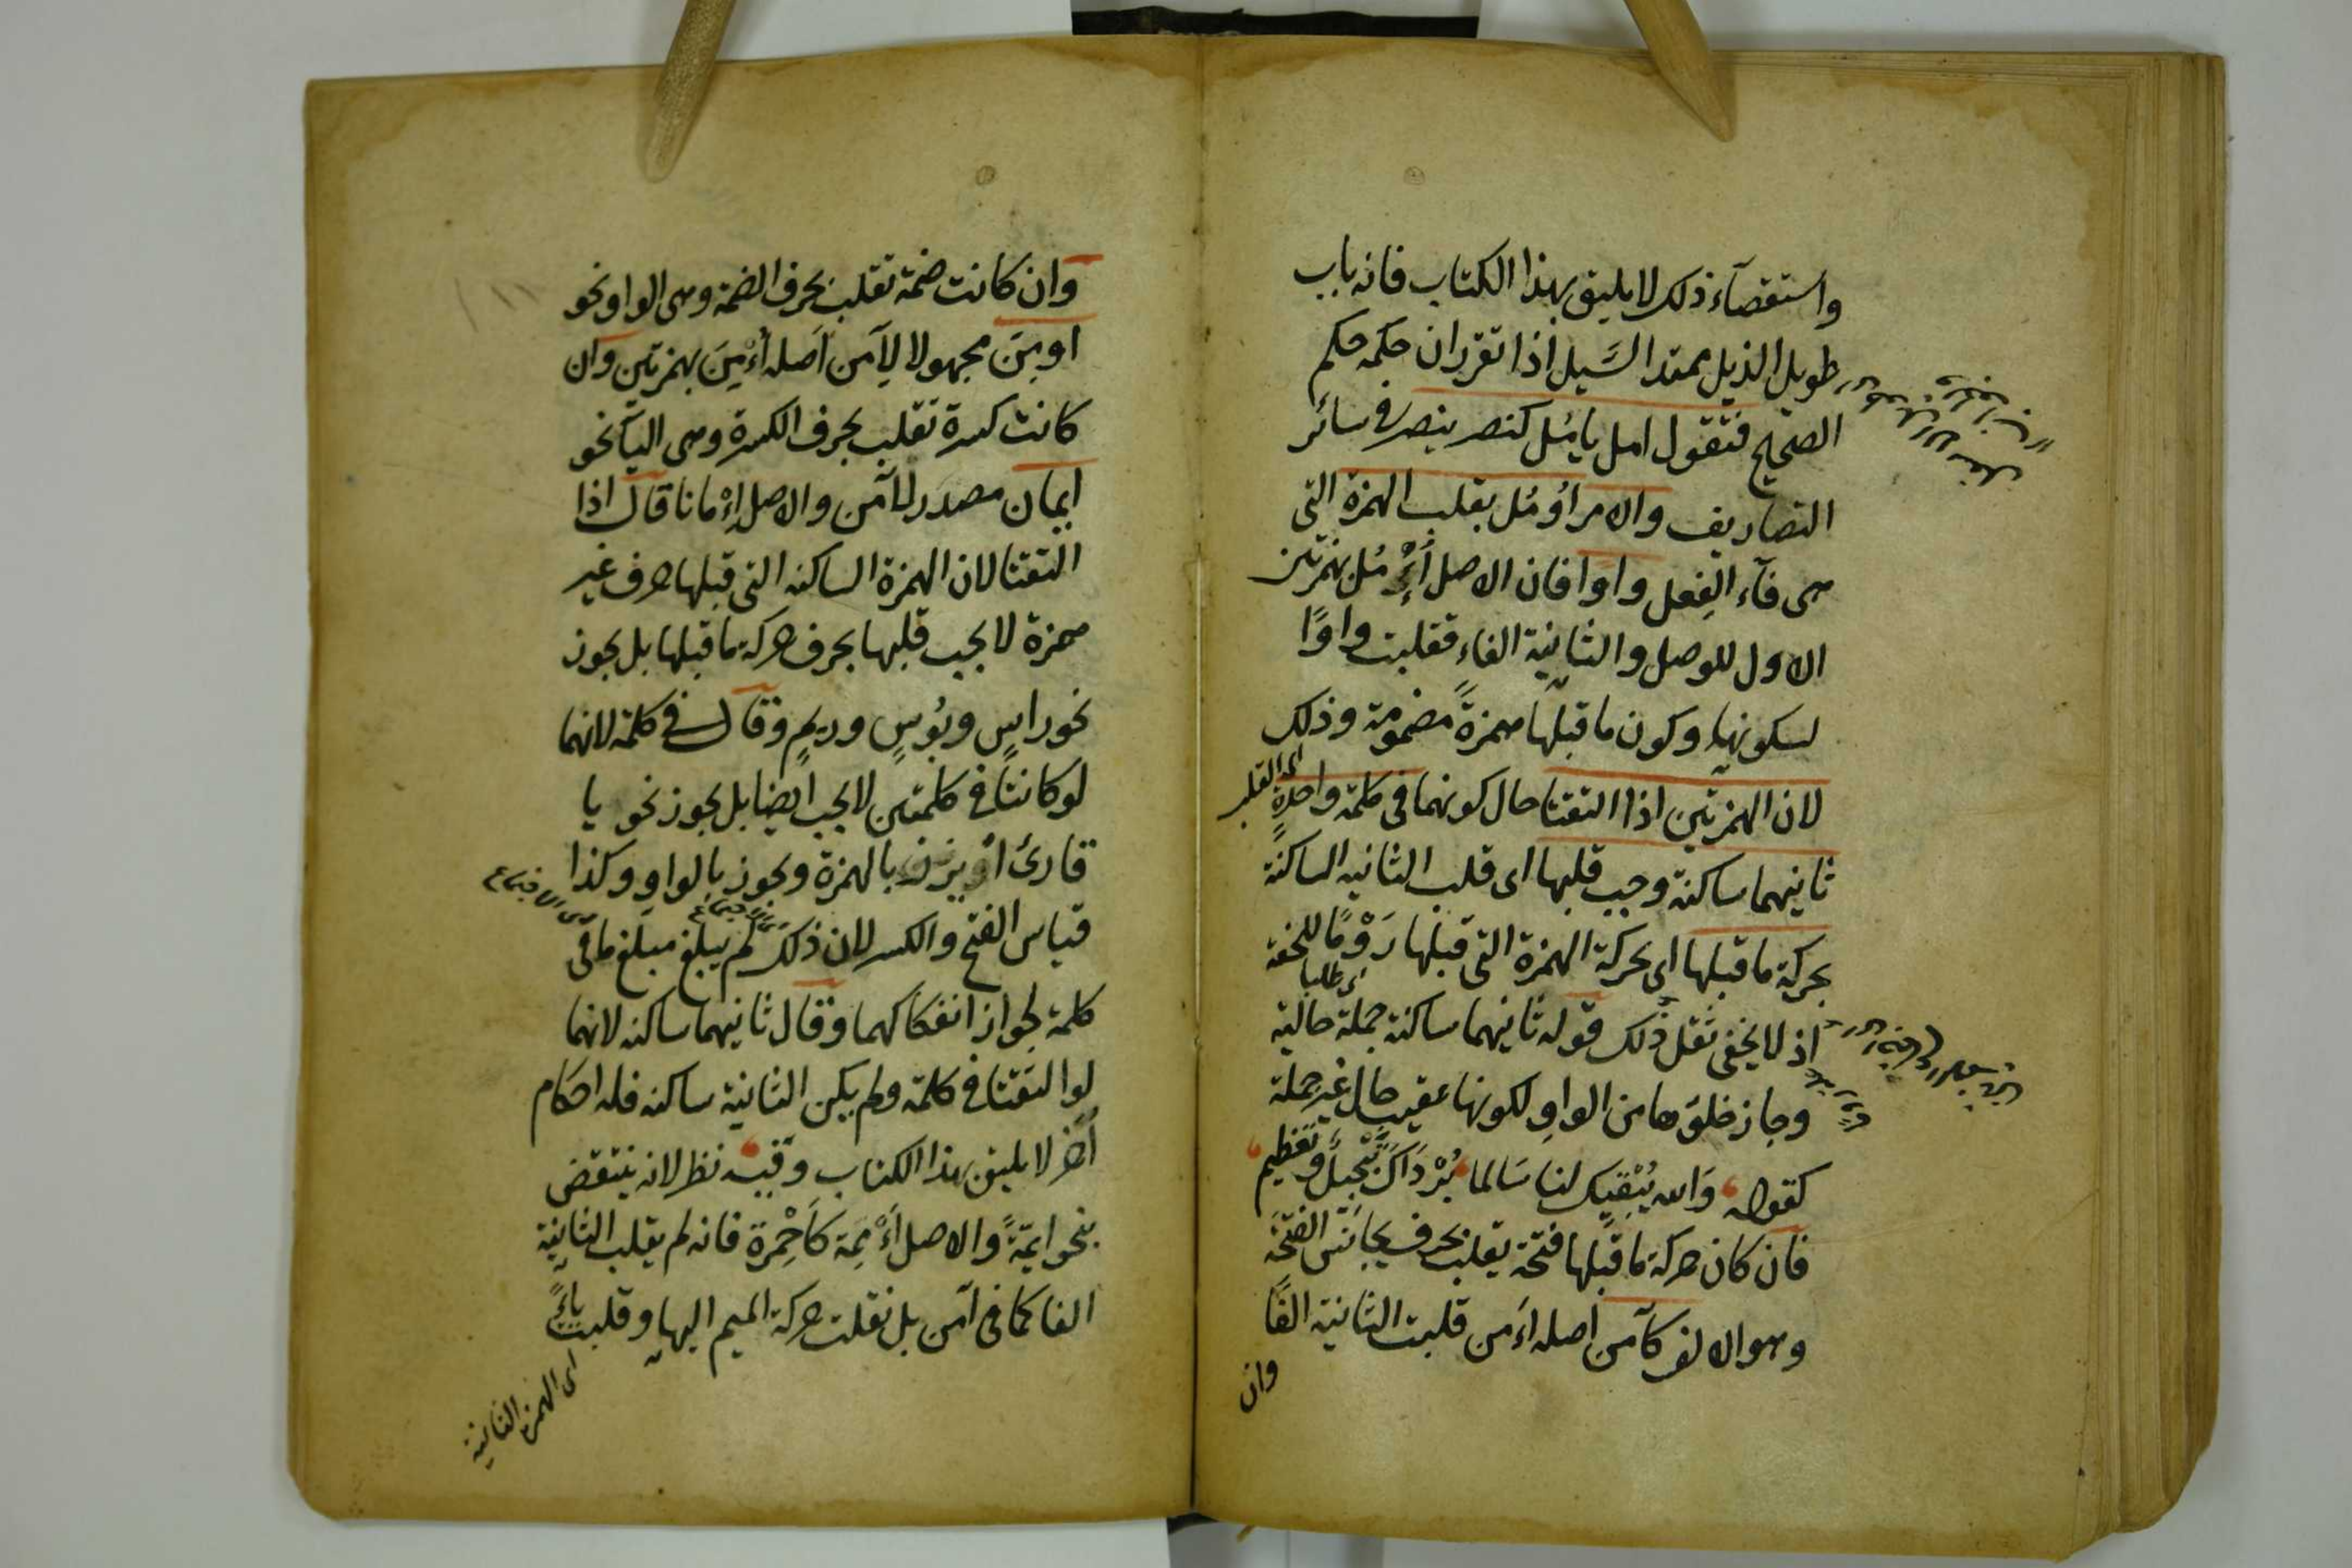 واستقصآء ذلك لا يليق بهذا الكتاب فانه باب
طويل الذيل ممتد السَّيل اذا تقرر ان حكمه حكم
الصحيح فتقول امل يامُل كنصر ينصر في سائر
التصاريف والامر اُومُل بقلب الهمزة التى
هى فآء الفِعل واوا فان الاصل أُءْمُل بهمزتين
الاول للوصل والثانية الفاء فقلبت واوًا
لسكونها وكون ما قبلها همزةً مضمومة وذلك
اى القلب
لان الهمزتين اذا التقتا حال كونهما فى كلمة واحدةٍ
ثانيهما ساكنة وجب قلبها اى قلب الثانيه الساكنة
بحركة ما قبلها اى بحركة الهمزة التى قبلها رَوْمًا للخفة
اى طلبا
اذ لا يخفى ثقل ذلك قوله ثانيهما ساكنة جملة حالية
وجاز خلوّها من الواوِ لكونها عقيب حال غير جملة
كقوله وَالله يُبْقيك لنا سَالما بُرْدَاكَ تَبْجيلٌ وتَعْظيم
فان كان حركة ما قبلها فتحة تقلب بحرف يجانس الفتحَة
وهو الالف كآمن اصله اَءْمن قلبت الثانية الفًا
وان
وان كانت ضمة تقلب بحرف الضمة وهى الواو نحو
اومِنَ مجهولا لِآمن اَصله أُءْمِنَ بهمزتين وان
كانت كسرة تقلب بحرف الكسرة وهى اليآ نحو
ايمان مصدَر لآمن والاصل اِءْمانا قال اذا
التقتا لان الهمزة الساكنه التى قبلها حرف غير
همزة لا يجب قلبها بحرف حركة ما قبلها بل يجوز
نحو راسٍ وبُوسٍ وريمٍ وقال فى كلمة لانهما
لو كانتا فى كلمتين لا يجب ايضا بل يجوز نحو يا
قارئ بالهمزة ويجوز بالواوِ وكذا
قياس الفتح والكسر لان ذلك لم يبلغ مبلغ ما فى
كلمة لجواز انفكاكهما وقال ثانيهما ساكنه لانهما
لو التقتا فى كلمة ولم يكن الثانية ساكنه فله احكام
اُخَر لا يليق بهذا الكتاب وفيه نظر لانه ينتقض
بنحو ايمّةً والاصل أَءْمِمَة كَاَحْمِرة فانه لم يقلب الثانية
الفا كما فى آمن بل نقلت حركة الميم اليها وقلبت ياءً
اى الهمزة الثانية